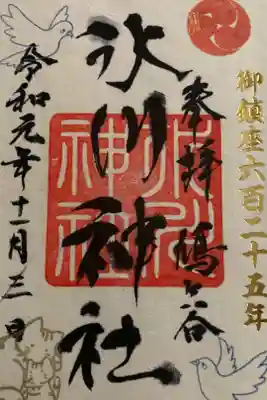 御鎮座六百二十五年
奉拝 鳩ヶ谷
氷川神社
氷川
神社
令和元年十一月三日